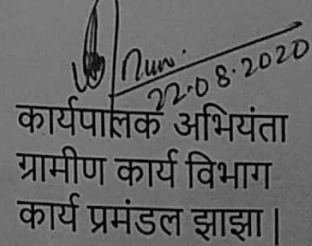 22.08.2020
कार्यपालक अभियंता
ग्रामीण कार्य विभाग
कार्य प्रमंडल झाझा |